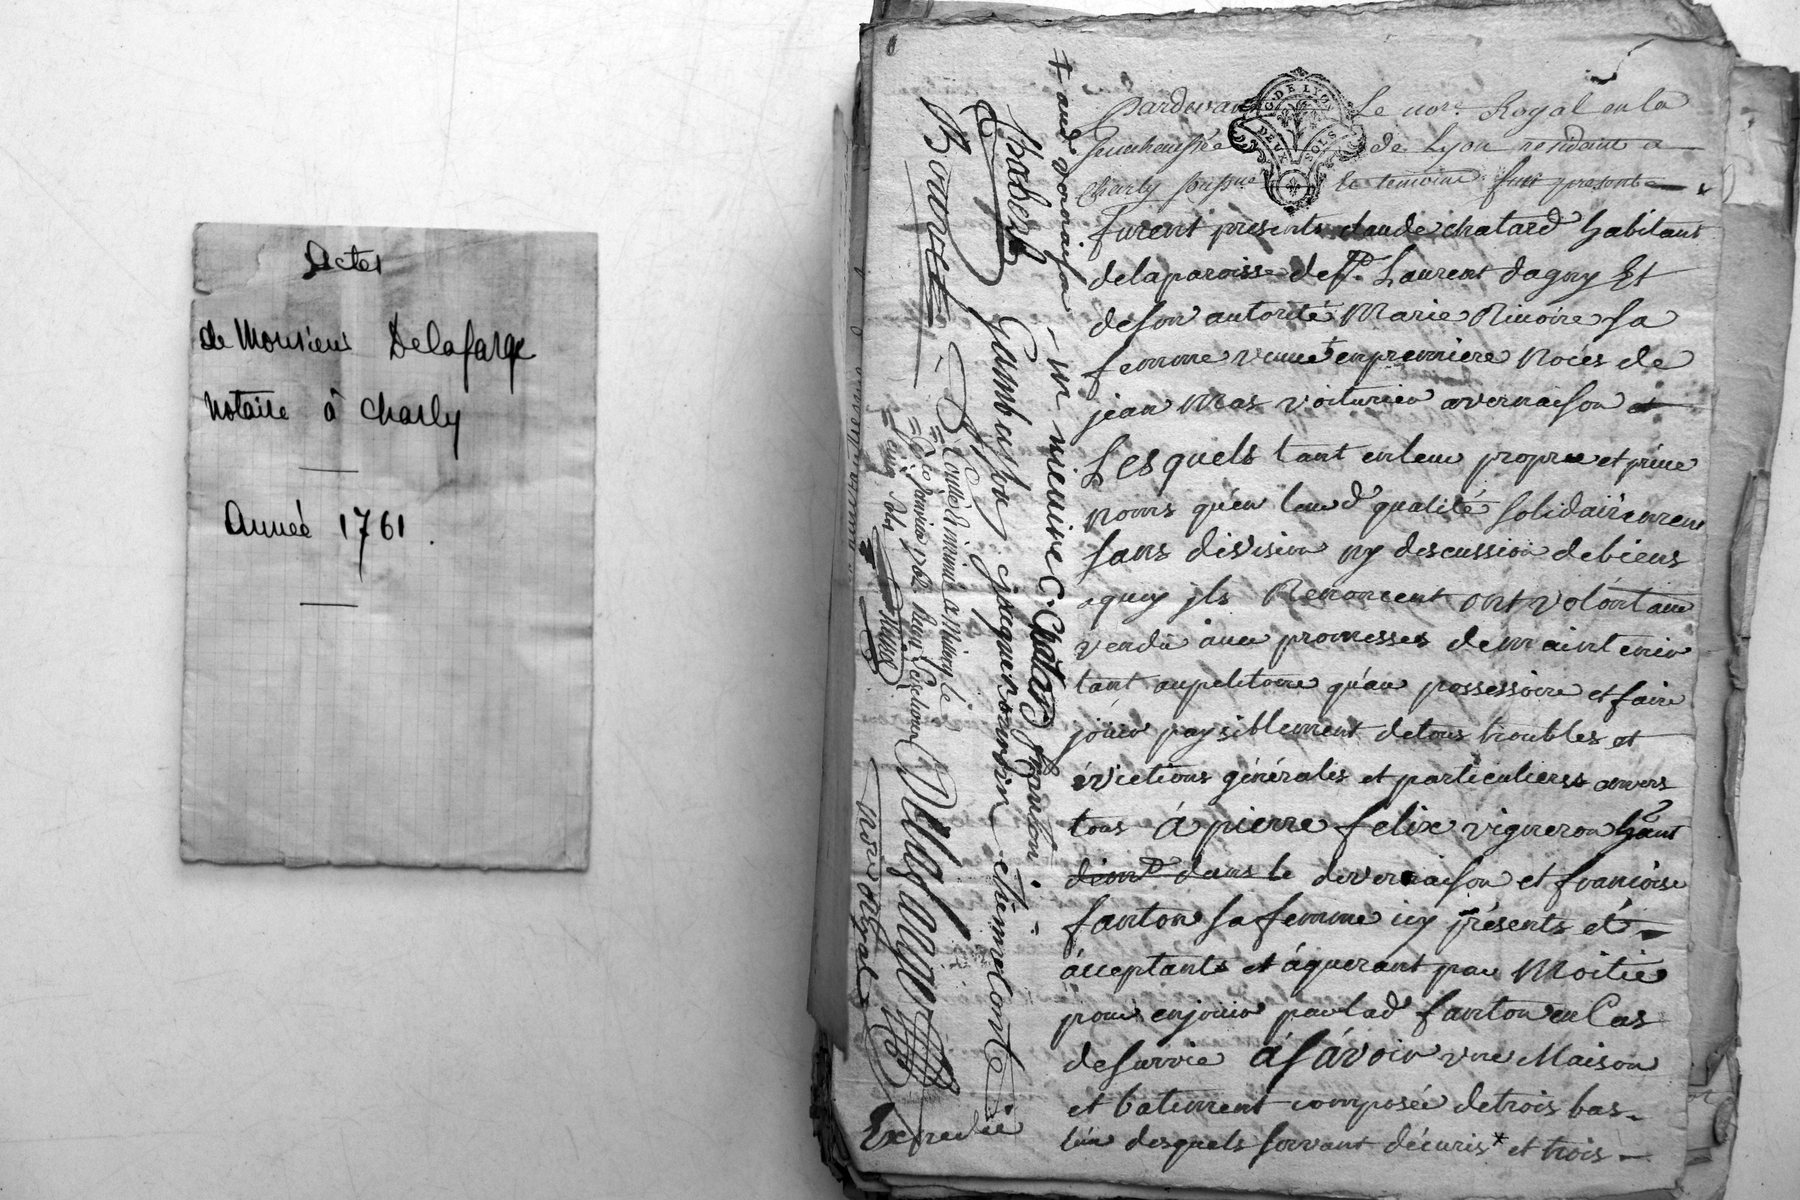 Actes
de Monsieur Delafarge
Notaire à Charly
Année 1761.
Pardevant Le nore. Royal en la
Senechaussée de Lyon residant a
Charly soussigné et temoins fut present
furent présents claude chatard habitant
delaparoisse de St. Laurent dagny Et
deson autorité Marie Rivoire sa
femme veuve + enpremiere Noces de
jean Mas voiturier avernaison et
Lesquels tant enleur propre et privé
noms qu'en leurd qualité solidairement
sans division ny descussion debiens
aquoy jls Renoncent ont volontaire
vendu avec promesses demaintenir
tant aupetitoire qu'au possessoire et faire
jouir paysiblement detous troubles et
évictions générales et particulieres envers
tous á pierre felix vigneron hant
dans le devernaison et francoise
fanton sa femme icy présents et
acceptants et áquerant par Moitié
pour enjouir parlad fanton en Cas
desurvie áSávoir une Maison
et batiment composée detrois bas
l'un desquels servant décuries* et trois
+ aud vernaison
C. Chatard
Gambaston jaquenomin etienne Conte
Bouret
Controlé
janvier 1762
Delafarge
Expedié
DEUX SOLS
G. DE LYON